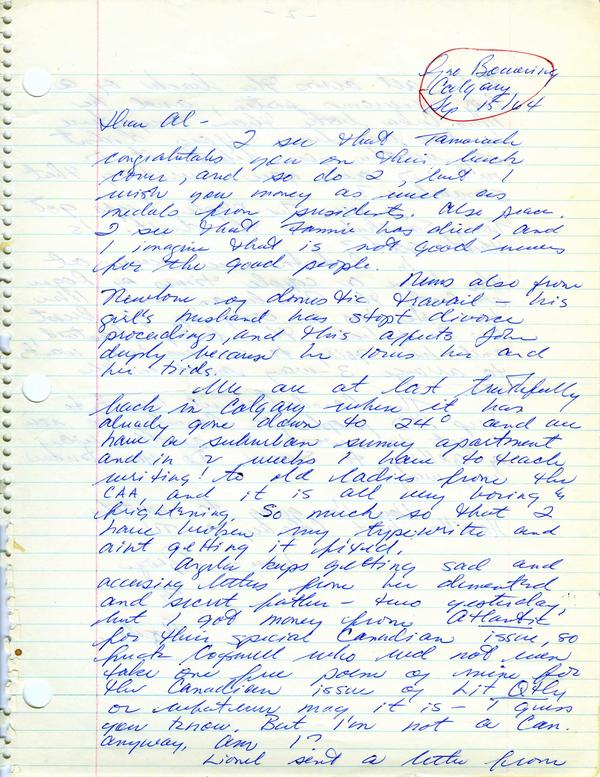 Bowering
Calgary
Sep 15/64
Dear Al -
I see that Tamarack
congratulates you on their back
cover, and so do I, but I
wish you money as well as
medals from presidents. Also peace.
I see that Fannie has died, and
I imagine that is not good news
for the good people.
News also from
Newlove of domestic travail - his
girl's husband has stopt divorce
proceedings, and this affects John
deeply because he loves her and
her kids.
We are at last truthfully
back in Calgary where it has
already gone down to 24° and we
have a suburban sunny apartment
and in 2 weeks I have to teach
writing! to old ladies from the
CAA, and it is all very boring &
frightening. So much so that I
have broken my typewriter and
aint getting it fixed.
Angela keeps getting sad and
accusing letters from her demented
and secret father - two yesterday;
but I got money from Atlantic
for their special Canadian issue, so
fuck Cogswell who wd not even
take one free poem of mine for
the Canadian issue of Lit Qtly
or whatever mag it is - I guess
you know. But I'm not a Can.
anyway, am I?
Lionel sent a letter from